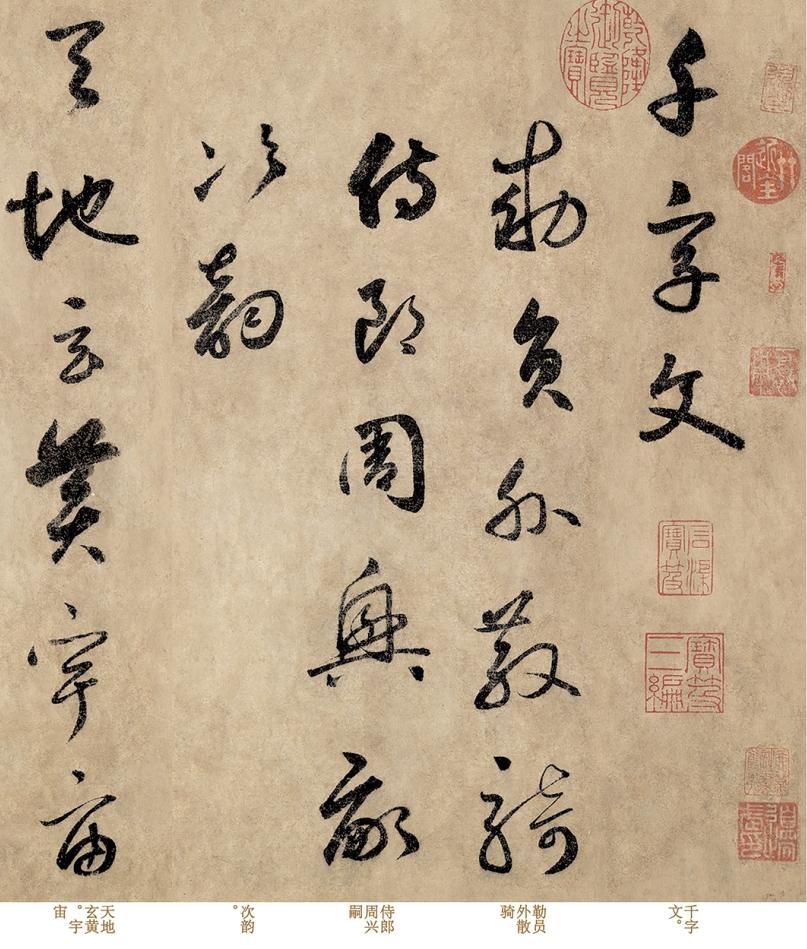 千字文
勑員外散騎
侍郎周興嗣
次韻
天地玄黃宇宙
乾隆御覽之寶
寶笈三編
千字文。
勒员外散骑
侍郎周兴嗣
次韵。
天地玄黄。宇宙